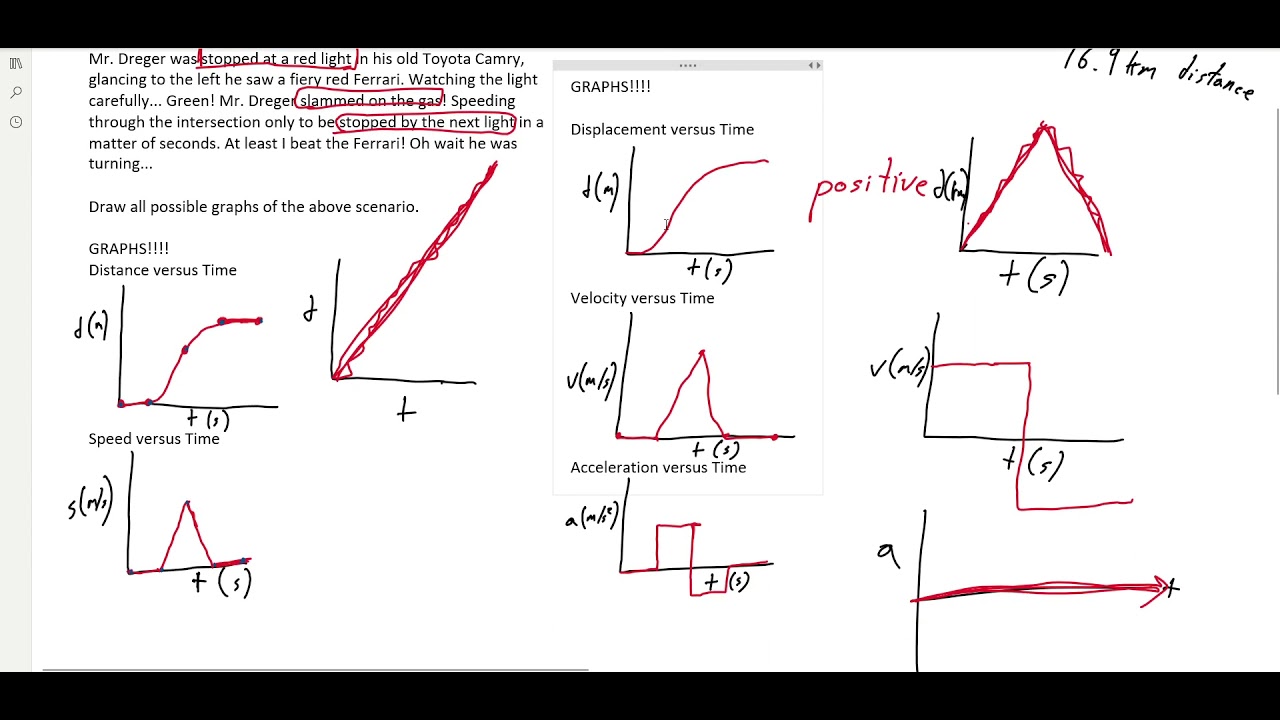 Mr. Dreger was stopped at a red light in his old Toyota Camry,
glancing to the left he saw a fiery red Ferrari. Watching the light
carefully... Green! Mr. Dreger slammed on the gas! Speeding
through the intersection only to be stopped by the next light in a
matter of seconds. At least I beat the Ferrari! Oh wait he was
turning...
Draw all possible graphs of the above scenario.
GRAPHS!!!!
Distance versus Time
d(m)
t(s)
d
t
Speed versus Time
s(m/s)
t(s)
GRAPHS!!!!
Displacement versus Time
d(m)
t(s)
Velocity versus Time
v(m/s)
t(s)
Acceleration versus Time
a(m/s²)
t(s)
16.9 km distance
positive
d(km)
t(s)
v(m/s)
t(s)
a
t